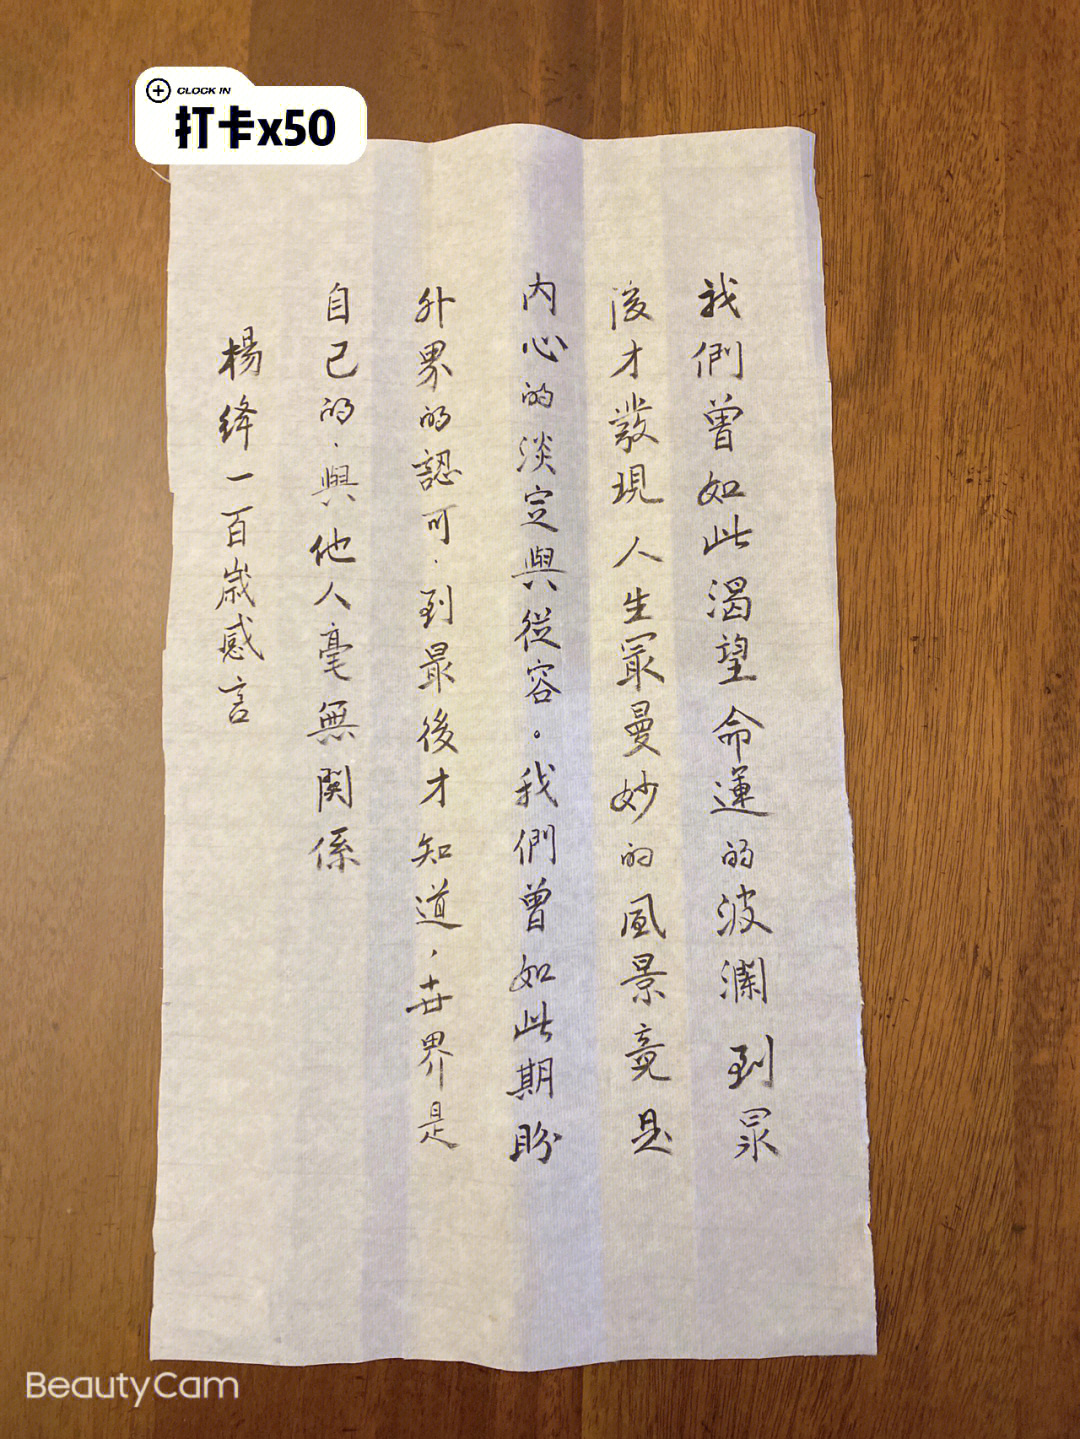 CLOCK IN
打卡x50
我們曾如此渴望命運的波瀾到最
後才發現人生最曼妙的風景竟是
內心的淡定與從容。我們曾如此期盼
外界的認可，到最後才知道，世界是
自己的，與他人毫無関係
楊絳一百歲感言
BeautyCam